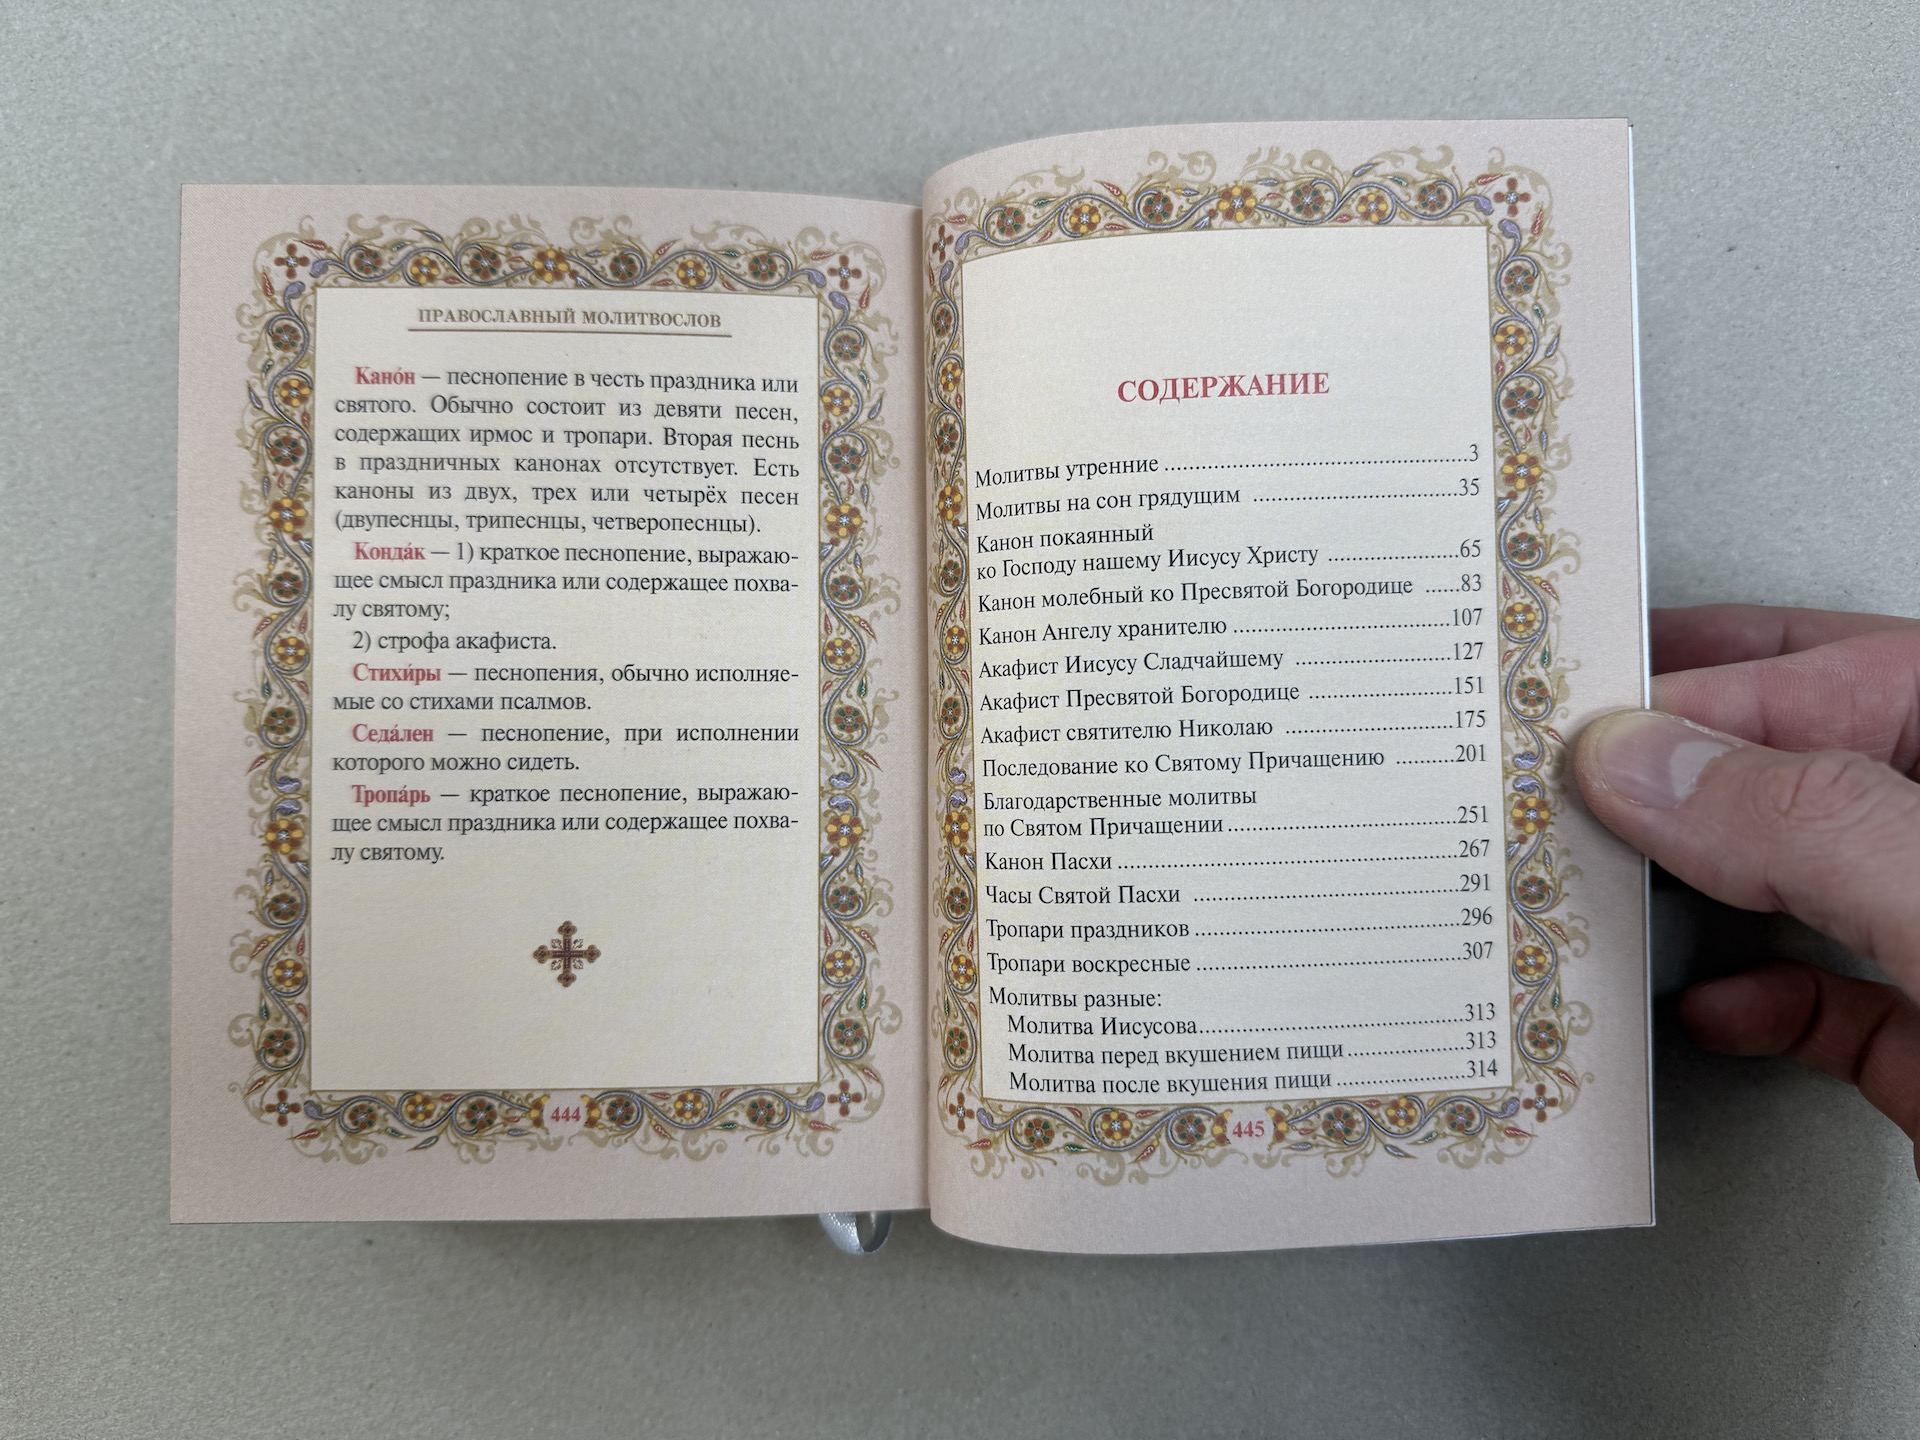 ПРАВОСЛАВНЫЙ МОЛИТВОСЛОВ
Кано́н — песнопение в честь праздника или
святого. Обычно состоит из девяти песен,
содержащих ирмос и тропари. Вторая песнь
в праздничных канонах отсутствует. Есть
каноны из двух, трех или четырёх песен
(двупеснцы, трипеснцы, четверопеснцы).
Конда́к — 1) краткое песнопение, выражаю-
щее смысл праздника или содержащее похва-
лу святому;
2) строфа акафиста.
Стихи́ры — песнопения, обычно исполняе-
мые со стихами псалмов.
Седа́лен — песнопение, при исполнении
которого можно сидеть.
Тропа́рь — краткое песнопение, выражаю-
щее смысл праздника или содержащее похва-
лу святому.
444
СОДЕРЖАНИЕ
Молитвы утренние ..........................................3
Молитвы на сон грядущим ............................35
Канон покаянный
ко Господу нашему Иисусу Христу .................65
Канон молебный ко Пресвятой Богородице ......83
Канон Ангелу хранителю ..............................107
Акафист Иисусу Сладчайшему .....................127
Акафист Пресвятой Богородице ...................151
Акафист святителю Николаю .......................175
Последование ко Святому Причащению .........201
Благодарственные молитвы
по Святом Причащении ................................251
Канон Пасхи ................................................267
Часы Святой Пасхи ......................................291
Тропари праздников .....................................296
Тропари воскресные .....................................307
Молитвы разные:
Молитва Иисусова.....................................313
Молитва перед вкушением пищи ................313
Молитва после вкушения пищи ..................314
445